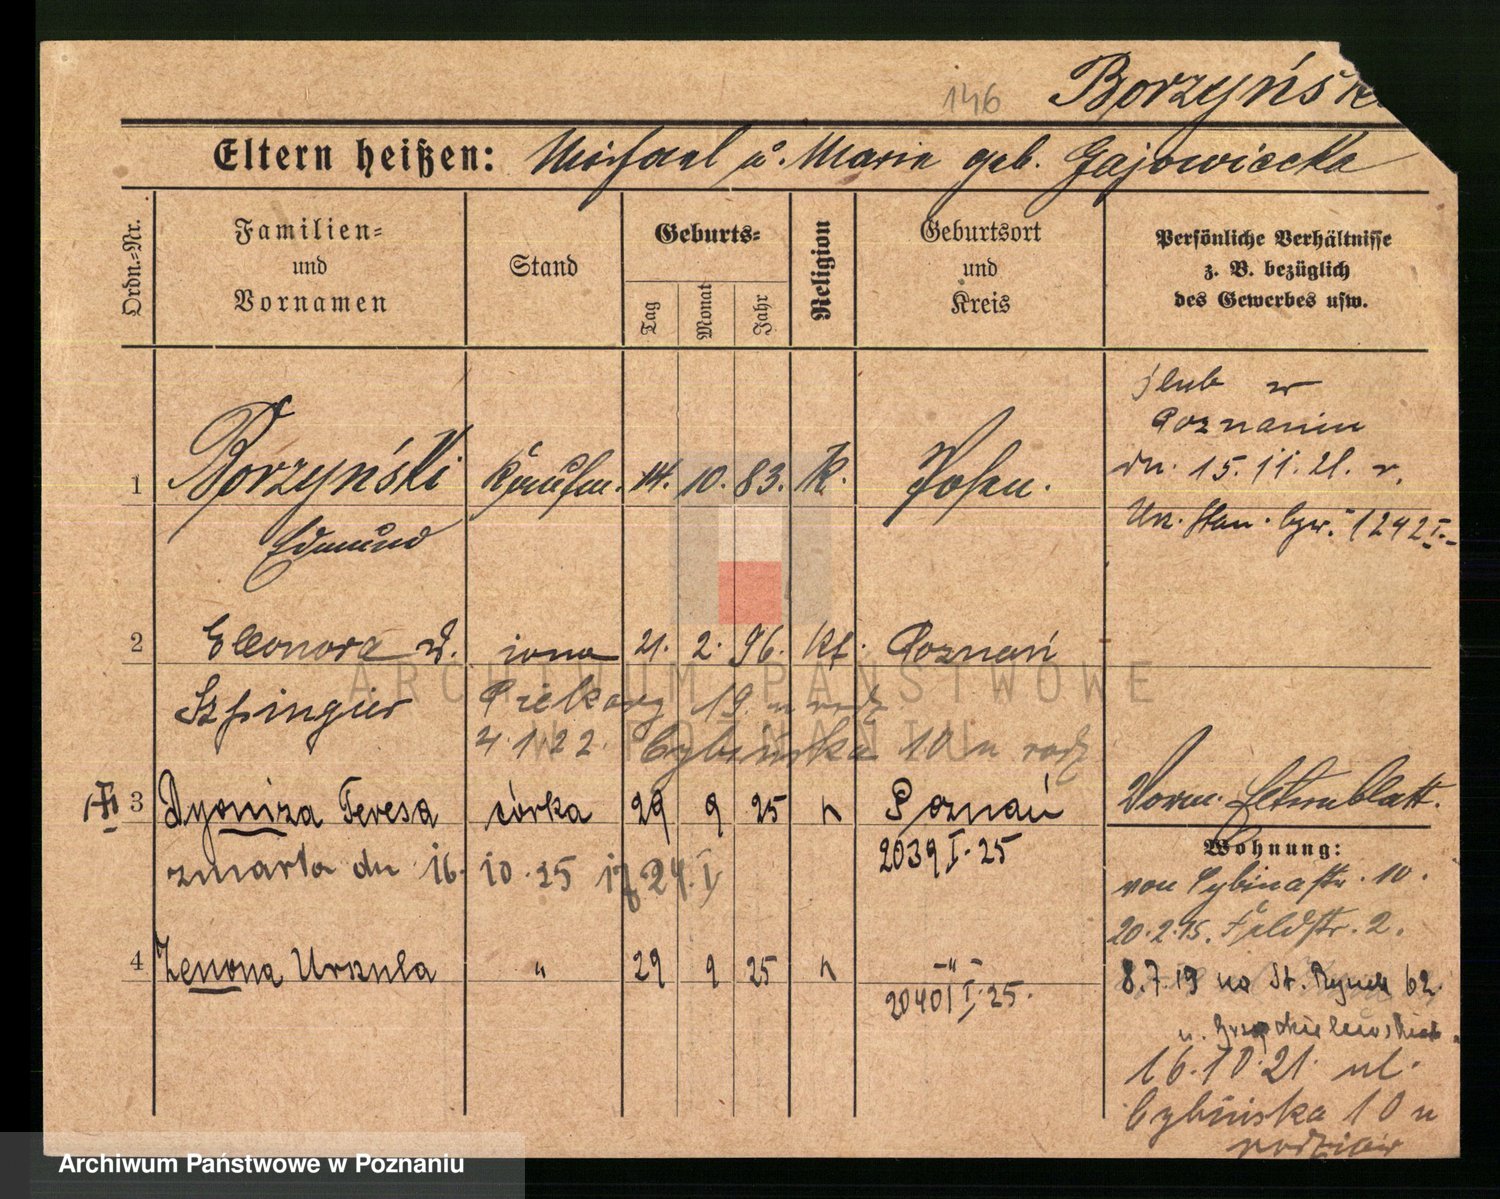 146
Borzyński
Eltern heißen: Michael u. Maria geb. Gajowiecka
Ordn.-Nr.
Familien-
und
Vornamen
Stand
Geburts-
Tag
Monat
Jahr
Religion
Geburtsort
und
Kreis
Persönliche Verhältnisse
z. B. bezüglich
des Gewerbes usw.
ślub w
Poznaniu
dn. 15.11.21. r.
1 Borzyński Kaufm. 14. 10. 83. K. Posen.
Edmund
Urz. stan. 1242 I.
2 Eleonora żona 21. 2. 96. kt. Poznań
Szpingier Piekary 19. u rodz.
4.1.22. Cybińska 10 u rodz
3 Dyoniza Teresa córka 29 9 25 k Poznań
2039 I. 25
zmarła dn 16. 10. 25
Wohnung:
von Cybinastr. 10.
20.2.15. Feldstr. 2.
4 Zenona Urszula " 29 9 25 k -"-
2040 I. 25.
8.7.19 na St. Rynek 62.
16.10.21. ul.
Cybińska 10 u
rodziców
ARCHIWUM PAŃSTWOWE
W POZNANIU
Archiwum Państwowe w Poznaniu